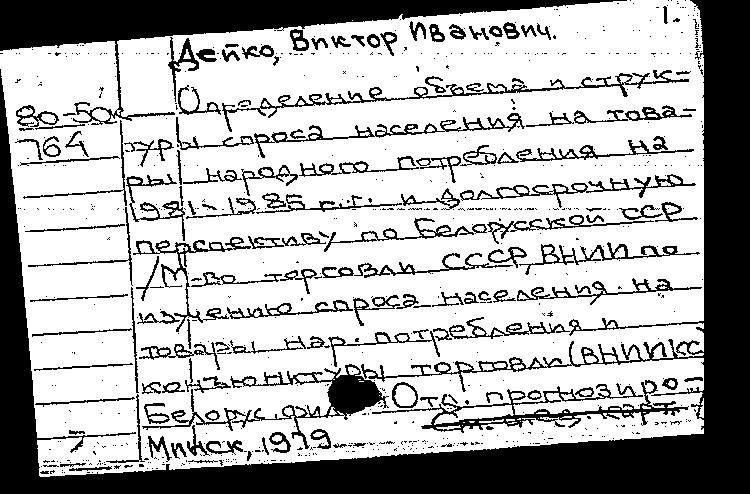 1.
Дейко, Виктор Иванович.
80-50к Определение объема и струк-
764 туры спроса населения на това-
ры народного потребления на
1981-1985 г.г. и долгосрочную
перспективу по Белорусской ССР
/М-во торговли СССР, ВНИИ по
изучению спроса населения на
товары нар. потребления и
конъюнктуры торговли (ВНИИКС)
Белорус. фил. Отд. прогнозиро-
См. след. карт.
7. Минск, 1979